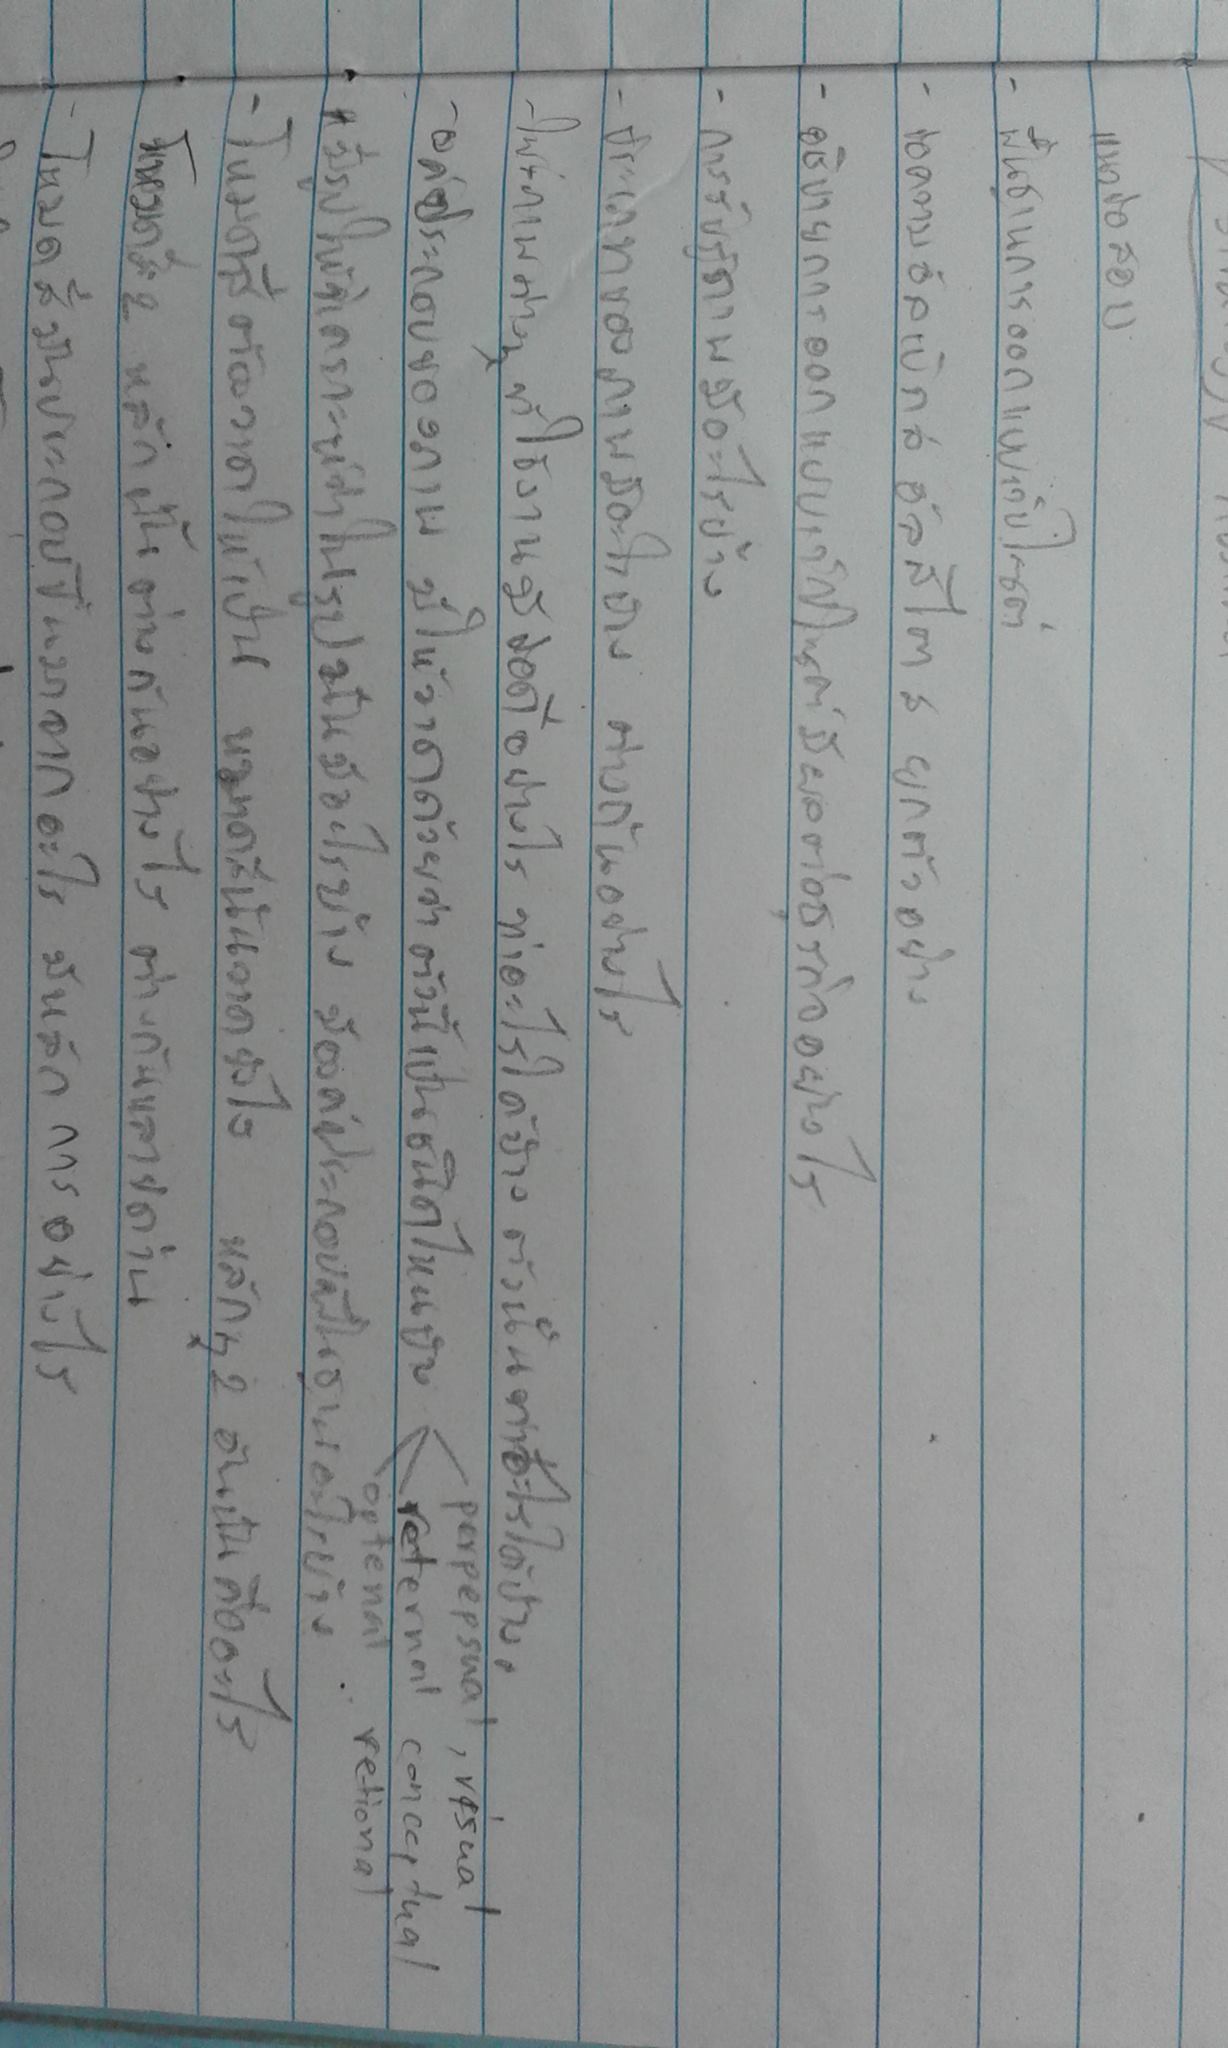 แนวข้อสอบ
- พื้นฐานการออกแบบเว็บไซต์
- ข้อความ ยกตัวอย่าง
- อธิบายการออกแบบเว็บไซต์มีผลต่อธุรกิจอย่างไร
- การรับรู้ภาพมีอะไรบ้าง
- ประเภทของภาพมีอะไรบ้าง ต่างกันอย่างไร
ภาพต่างๆ ที่ใช้งานมีข้อดีอย่างไร ทำอะไรได้บ้าง ตัวนั้นทำอะไรได้บ้าง
- องค์ประกอบของภาพ มีให้วาดด้วยว่าตัวนี้เป็นชนิดไหนบ้าง
perpepsual, visual
reternal conceptual
optenal retional
มีรูปให้วิเคราะห์ว่าในรูปนั้นมีอะไรบ้าง มีองค์ประกอบพื้นฐานอะไรบ้าง
- โหมดสีต้องวาดให้เป็น หมวดสีนั้นวาดยังไง หลักๆ 2 อันนั้นคืออะไร
โหมดสี 2 หลักนั้นต่างกันอย่างไร ต่างกันหลายด้าน
- โหมดสีมันประกอบขึ้นมาจากอะไร มีหลักการอย่างไร